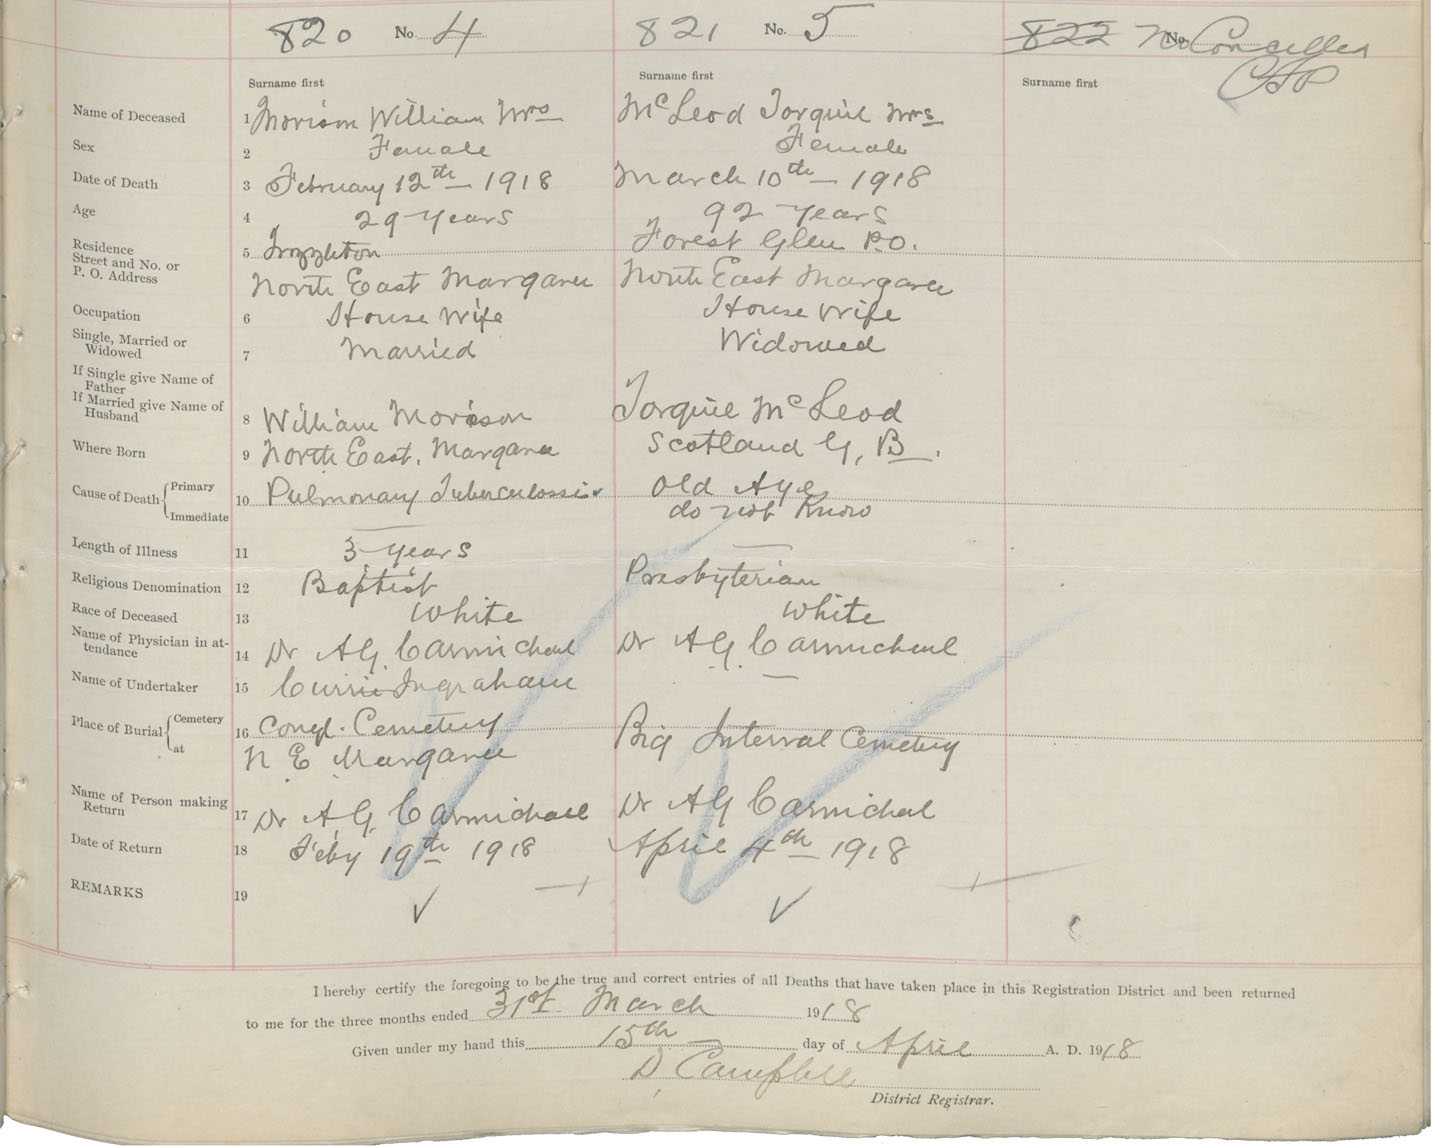 820 No. 4 821 No. 5 822 No. Cancelled
Surname first Surname first Surname first
Name of Deceased 1 Morison William Mrs McLeod Torquil Mrs
Sex 2 Female Female
Date of Death 3 February 12th 1918 March 10th 1918
Age 4 29 Years 92 Years
Residence Street and No. or P. O. Address 5 Forest Glen P.O.
North East Margaree North East Margaree
Occupation 6 House Wife House Wife
Single, Married or Widowed 7 Married Widowed
If Single give Name of Father
If Married give Name of Husband 8 William Morison Torquil McLeod
Where Born 9 North East, Margaree Scotland G, B.
Cause of Death { Primary 10 Pulmonary Tuberculossis Old Age
Immediate do not Know
Length of Illness 11 3 Years —
Religious Denomination 12 Baptist Presbyterian
Race of Deceased 13 White White
Name of Physician in attendance 14 Dr A G. Carmichael Dr A G. Carmicheal
Name of Undertaker 15 Currie Ingraham —
Place of Burial { Cemetery 16 Congl. Cemetery Big Interval Cemetery
at N E Margaree
Name of Person making Return 17 Dr A G. Carmichael Dr A G Carmichal
Date of Return 18 Feby 19th 1918 April 4th 1918
REMARKS 19
I hereby certify the foregoing to be the true and correct entries of all Deaths that have taken place in this Registration District and been returned
to me for the three months ended 31st March 1918
Given under my hand this 15th day of April A. D. 1918
D, Campbell
District Registrar.